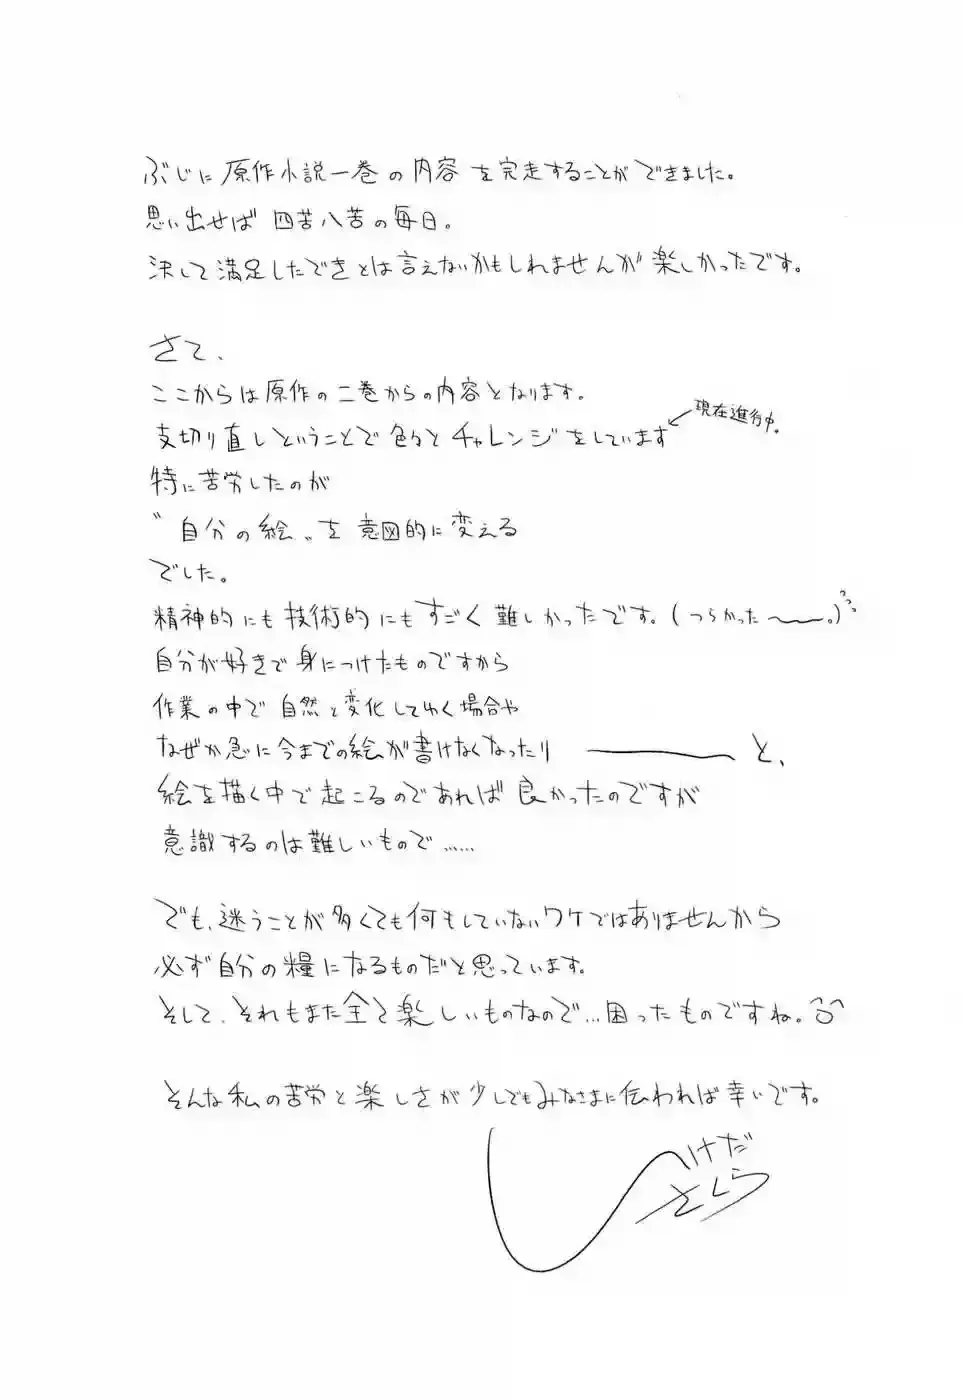 ぶじに原作小説一巻の内容を完走することができました。
思い出せば四苦八苦の毎日。
決して満足したできとは言えないかもしれませんが楽しかったです。
さて、
ここからは原作の二巻からの内容となります。
支切り直しということで色々とチャレンジをしています
現在進行中。
特に苦労したのが
〝自分の絵〟を意図的に変える
でした。
精神的にも技術的にもすごく難しかったです。(つらかった〜〜。)
自分が好きで身につけたものですから
作業の中で自然と変化してゆく場合や
なぜか急に今までの絵が書けなくなったり ――― と、
絵を描く中で起こるのであれば良かったのですが
意識するのは難しいもので……
でも、迷うことが多くても何もしていないワケではありませんから
必ず自分の糧になるものだと思っています。
そして、それもまた全て楽しいものなので…困ったものですね。
そんな私の苦労と楽しさが少しでもみなさまに伝われば幸いです。
いけだ
さくら